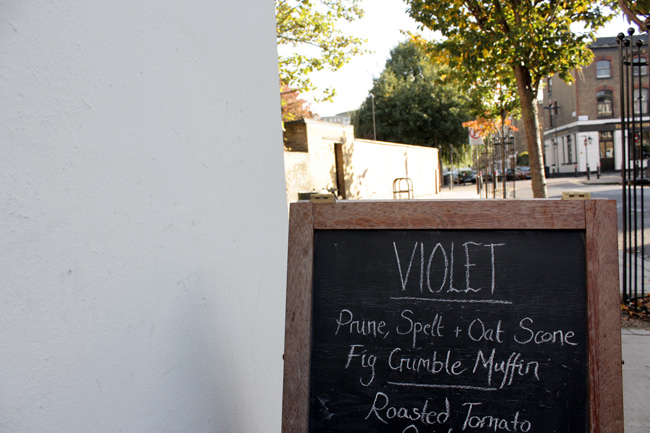 VIOLET
Prune, Spelt + Oat Scone
Fig Crumble Muffin
Roasted Tomato